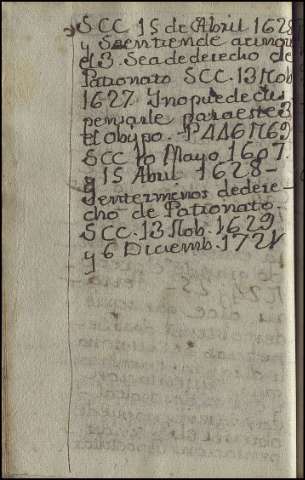 SCC 15 de Abril 1628
y Seentiende aunque
el 3. Sea dederecho de
Patronato SCC. 13 Nob
1627 Ynopuede dis
pensarle paraeste 3
el obispo.
SCC 10 Mayo 1607.
y 15 Abril 1628-
Yenterminos dedere-
cho de Patronato.
SCC. 13 Nob. 1629
y 6 Diciemb. 1721
y